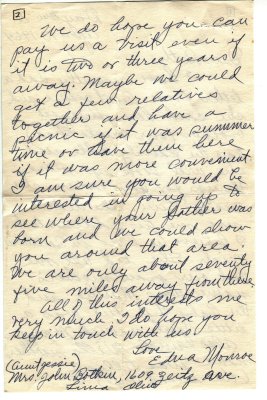 2
We do hope you can
pay us a visit even if
it is two or three years
away. Maybe we could
get a few relatives
together and have a
picnic if it was summer
time or have them here
if it was more convenient.
I am sure you would be
interested in going up to
see where your father was
born and we could show
you around that area.
We are only about seventy
five miles away from there.
All of this interests me
very much. I do hope you
keep in touch with us.
Love
Edna Monroe
(Aunt Jessie)
Mrs. John Botkin, 1609 Ave.
Lima Ohio